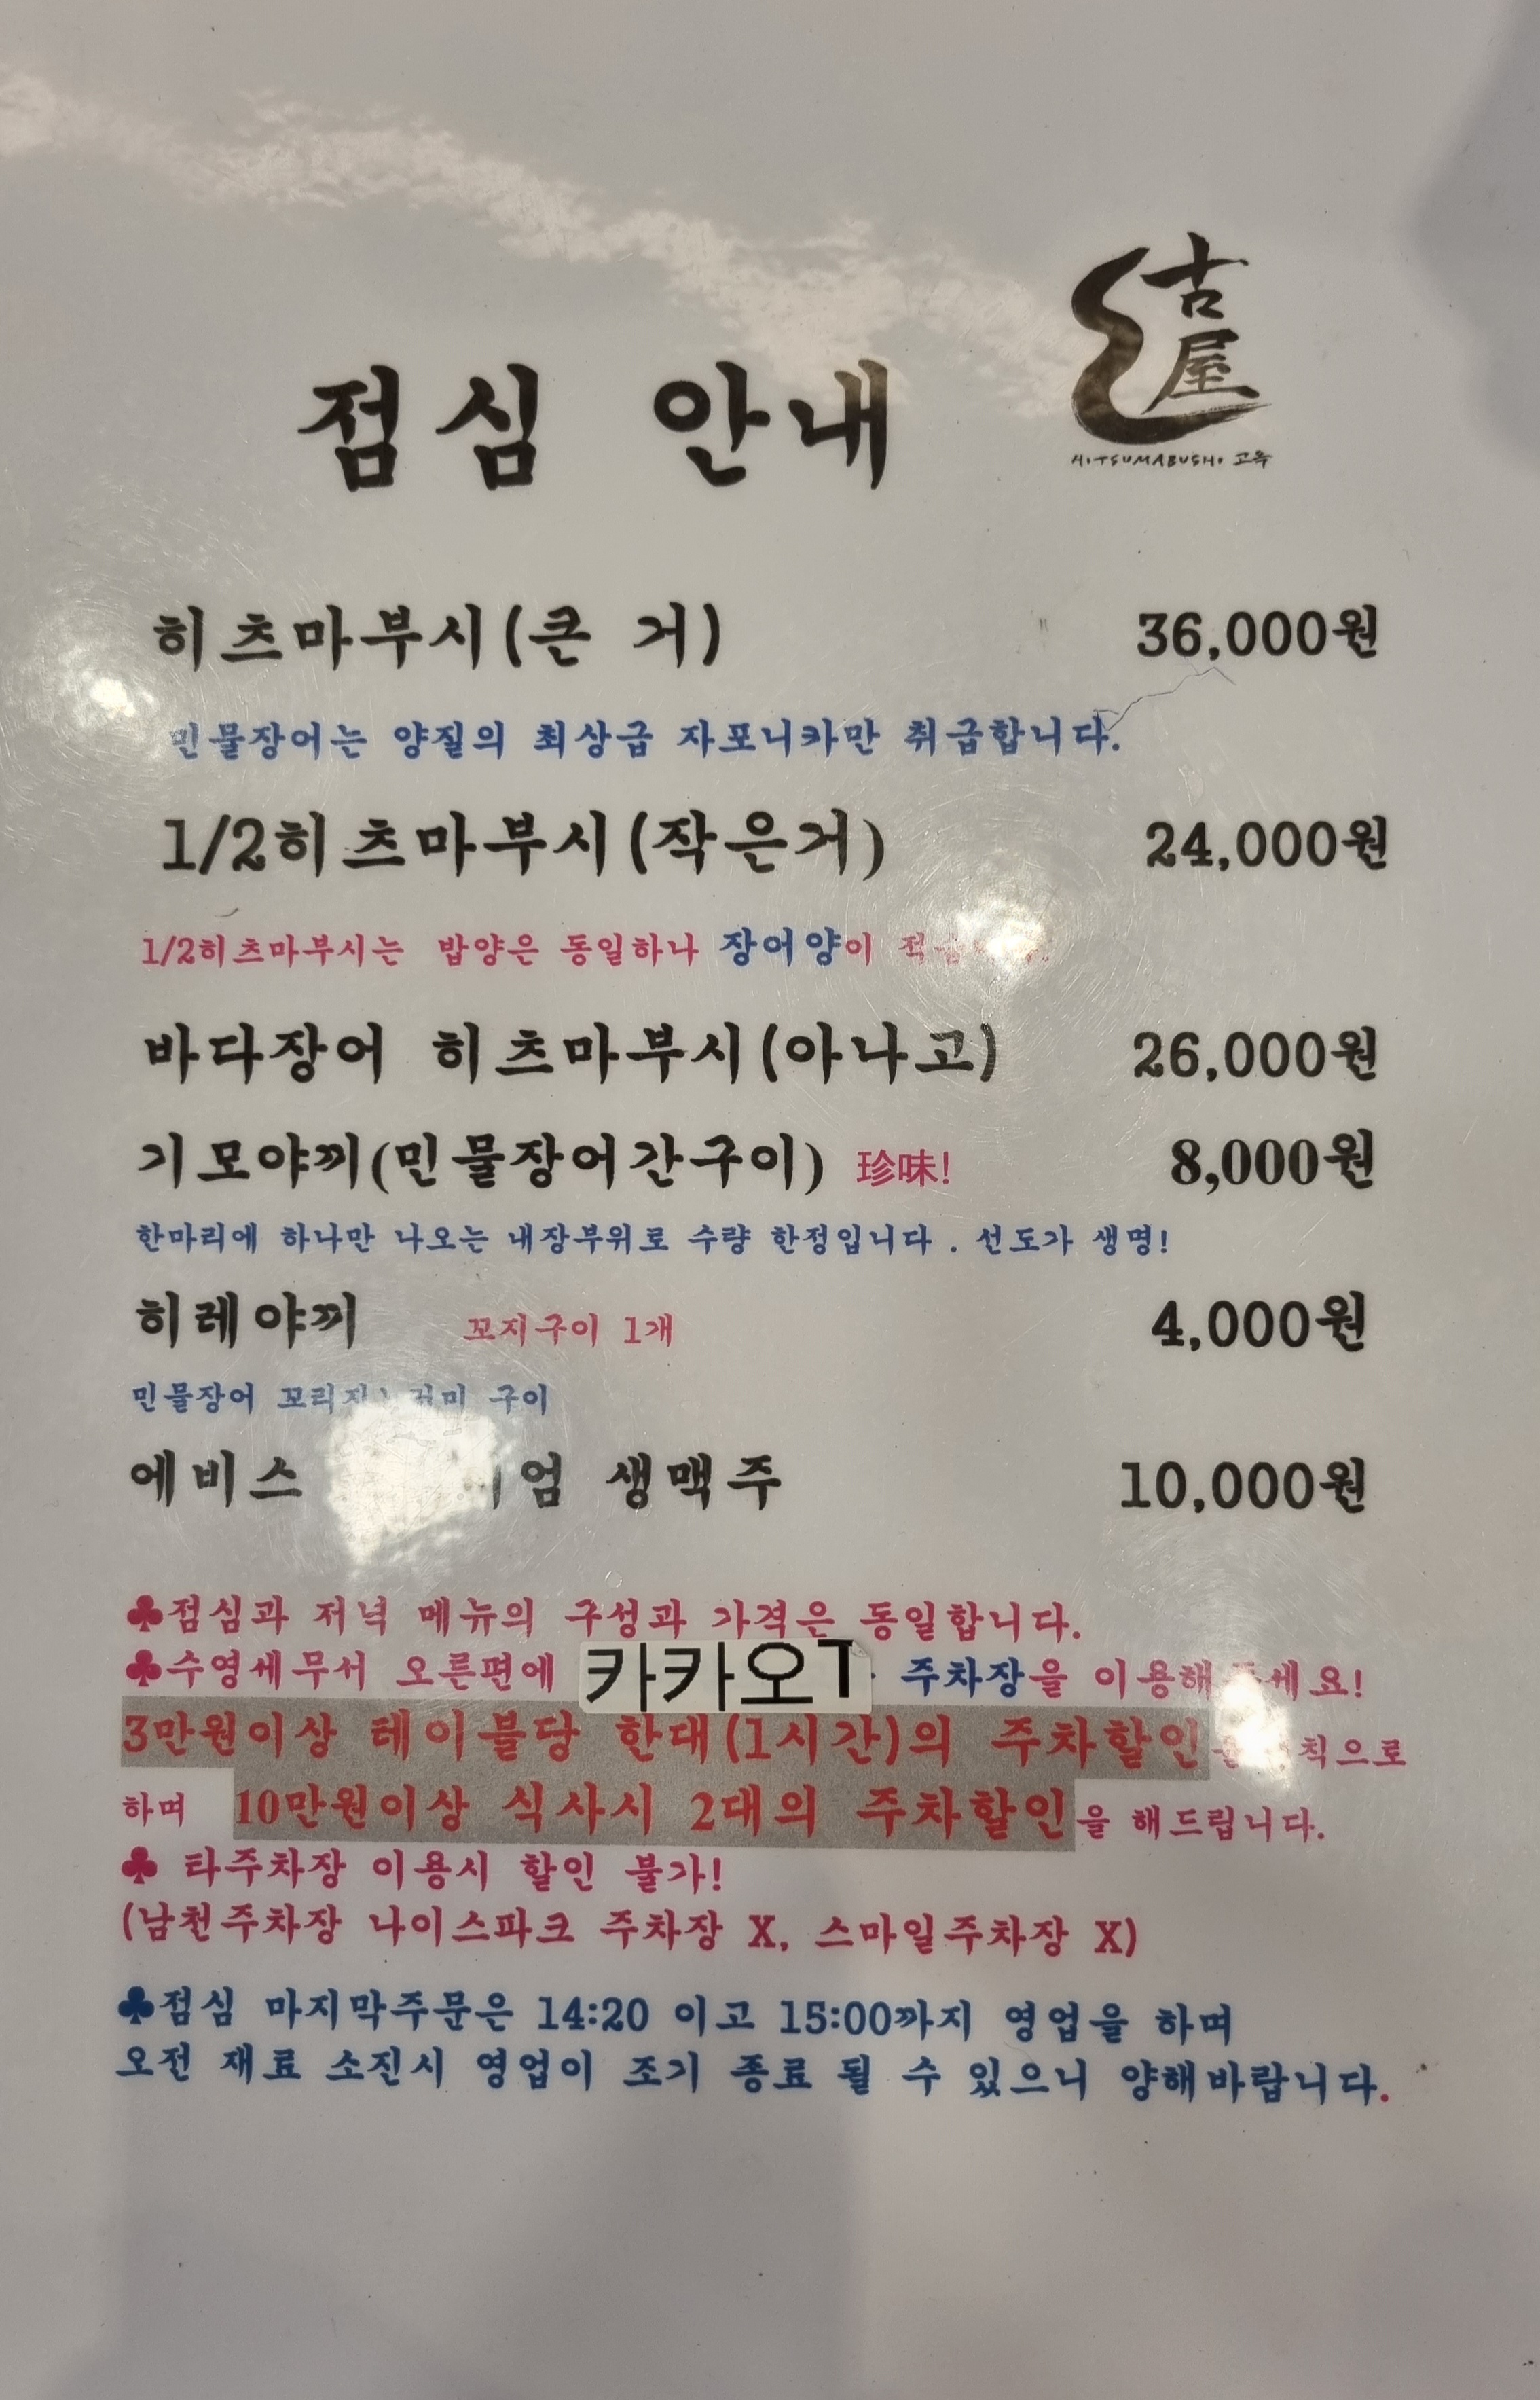 古屋
HITSUMABUSHI 고옥
점심 안내
히츠마부시(큰 거) 36,000원
민물장어는 양질의 최상급 자포니카만 취급합니다.
1/2히츠마부시(작은거) 24,000원
1/2히츠마부시는 밥양은 동일하나 장어양이
바다장어 히츠마부시(아나고) 26,000원
기모야끼(민물장어간구이) 珍味! 8,000원
한마리에 하나만 나오는 내장부위로 수량 한정입니다 . 선도가 생명!
히레야끼 꼬지구이 1개 4,000원
민물장어 구이
에비스 생맥주 10,000원
♣점심과 저녁 메뉴의 구성과 가격은 동일합니다.
♣수영세무서 오른편에 카카오T 주차장을
3만원이상 테이블당 한대(1시간)의 주차할인
하며 10만원이상 식사시 2대의 주차할인을 해드립니다.
♣ 타주차장 이용시 할인 불가!
(남천주차장 나이스파크 주차장 X, 스마일주차장 X)
♣점심 마지막주문은 14:20 이고 15:00까지 영업을 하며
오전 재료 소진시 영업이 조기 종료 될 수 있으니 양해바랍니다.